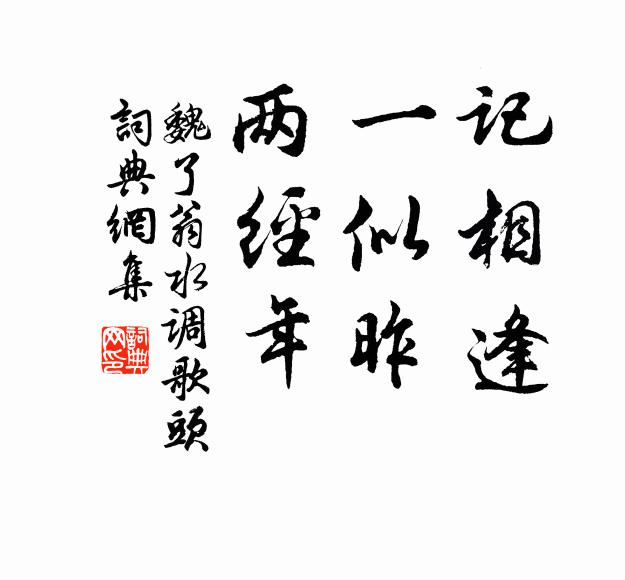 记相逢
一似昨
两經年
魏了翁水调歌頭
詞典網集
詞典
网印